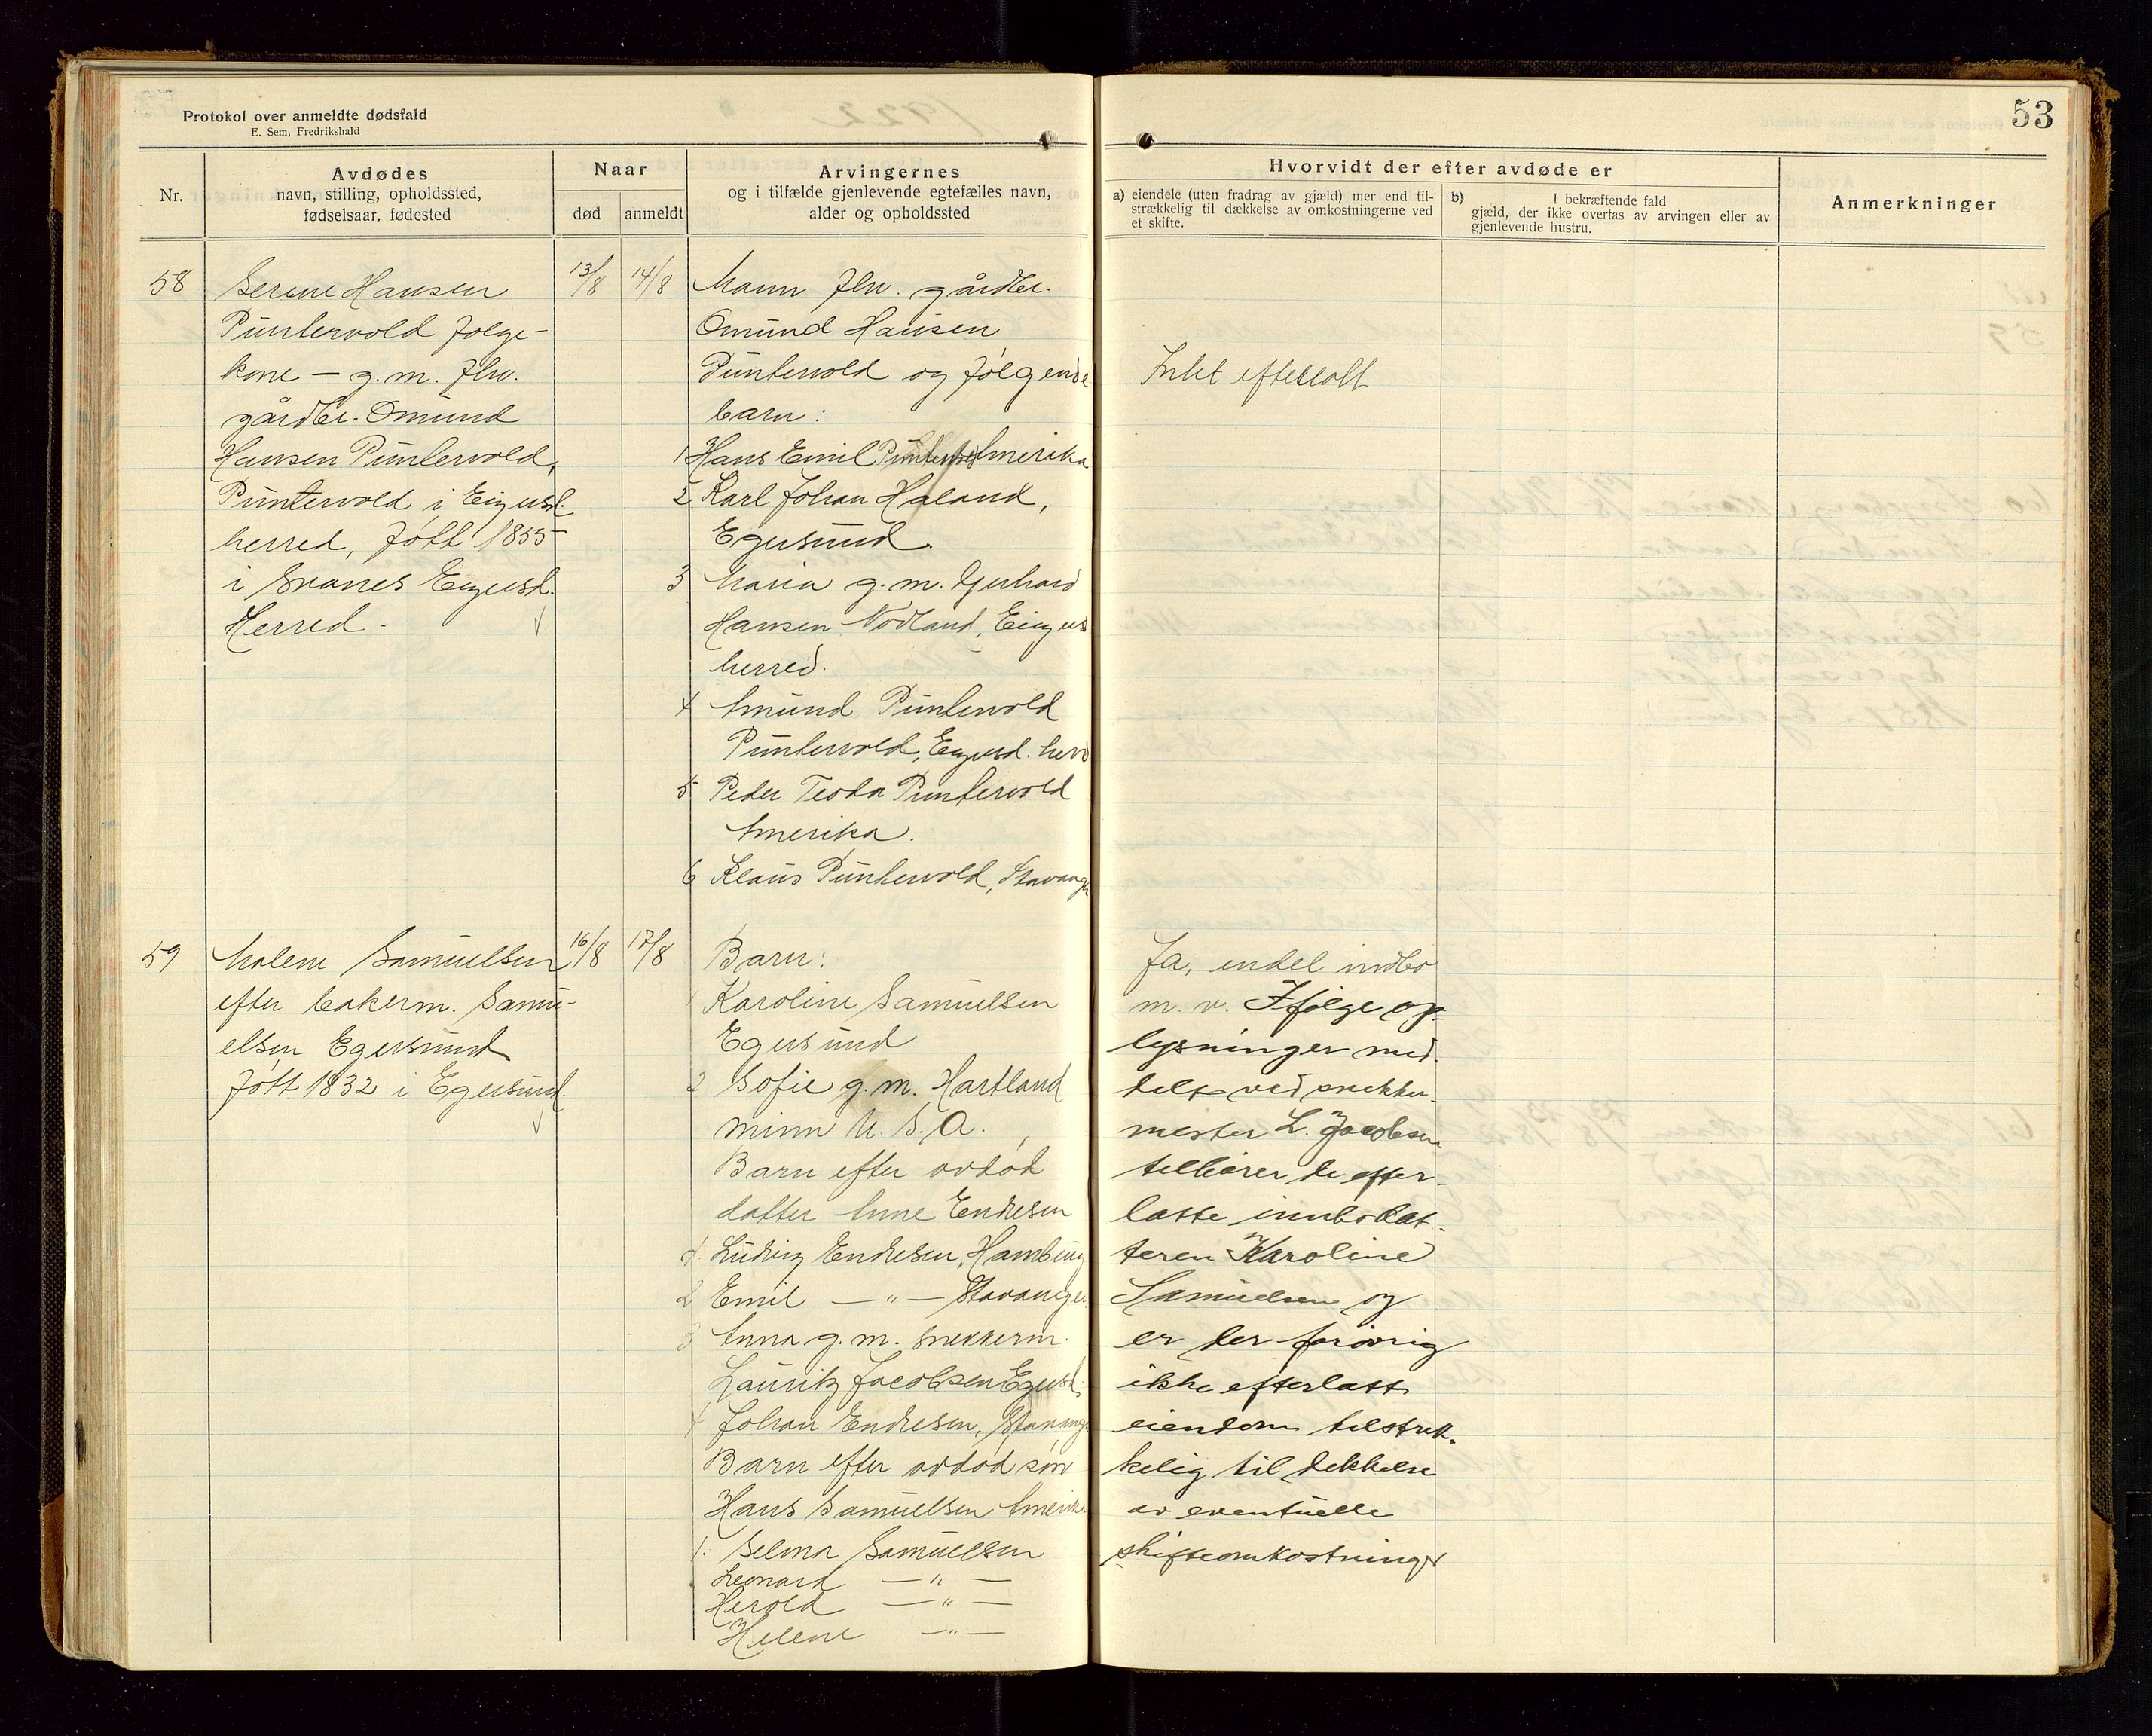 Protokol over anmeldte dødsfald
E. Sem, Fredrikshald
53
Nr.
Avdødes
navn, stilling, opholdssted,
fødselsaar, fødested
Naar
død
anmeldt
Arvingernes
og i tilfælde gjenlevende egtefælles navn,
alder og opholdssted
Hvorvidt der efter avdøde er
a) eiendele (uten fradrag av gjæld) mer end til-
strækkelig til dækkelse av omkostningerne ved
et skifte.
b) I bekræftende fald
gjæld, der ikke overtas av arvingen eller av
gjenlevende hustru.
Anmerkninger
58
Serene Hansen
Puntervold folge-
kone – g.m. fhv.
gårdbr. Omund
Hansen Puntervold,
Puntervold i Eigersd.
herred, født 1855
i Svanes Eigersd.
Herred.
13/8
14/8
Mann fhv. gårdbr.
Omund Hansen
Puntervold og følgende
barn:
1 Hans Emil Puntervold Amerika
2 Karl Johan Haland,
Egersund.
3 Maria g.m. Gerhard
Hansen Nodland, Eigers
herred.
4 Amund Puntervold
Puntervold, Eigersd. herd
5 Peder Teodor Puntervold
Amerika.
6 Klaus Puntervold, Stavanger
Intet efterlatt
59
Malene Samuelsen
efter bakerm. Samu-
elsen Egersund
født 1832 i Egersund.
16/8
17/8
Barn:
1 Karoline Samuelsen
Egersund
2 Sofie g.m. Hartland
Minn U.S.A.
Barn efter avdød
datter Anne Endresen
1. Ludvig Endresen, Hamburg
2 Emil — " — Stavanger
3 Anna g.m. snekkerm.
Lauritz Jacobsen Egersd.
4 Johan Endresen, Stavanger
Barn efter avdød søn
Hans Samuelsen Amerika
1. Selma Samuelsen
Leonard — " —
Herold — " —
Helene — " —
Ja, endel indbo
m.v. Ifølge op-
lysninger med-
delt ved snekker-
mester L. Jacobsen
tilhører de efter-
latte innbo dat-
teren Karoline
Samuelsen og
er der forøvrig
ikke efterlatt
eiendom tilstrek-
kelig til dekkelse
av eventuelle
skifteomkostninger